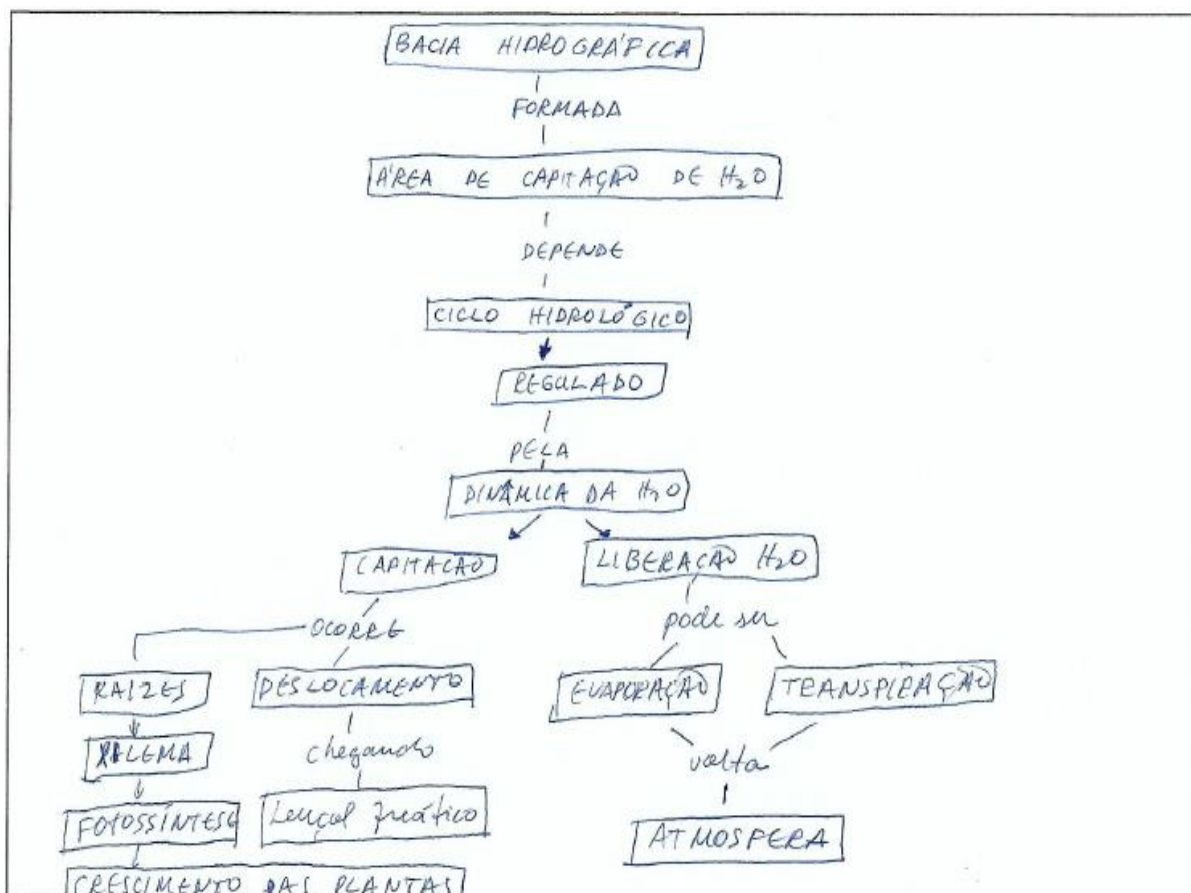 BACIA HIDROGRÁFICA
FORMADA
ÁREA DE CAPITAÇÃO DE H₂O
DEPENDE
CICLO HIDROLÓGICO
REGULADO
PELA
DINÂMICA DA H₂O
CAPITAÇÃO LIBERAÇÃO H₂O
OCORRE pode ser
RAÍZES DESLOCAMENTO EVAPORAÇÃO TRANSPIRAÇÃO
XILEMA chegando volta
FOTOSSÍNTESE Lençol freático ATMOSFERA
CRESCIMENTO DAS PLANTAS